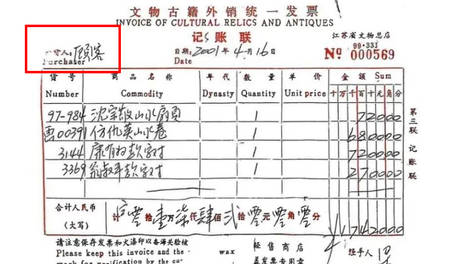 文物古籍外销统一发票
INVOICE OF CULTURAL RELICS AND ANTIQUES
记账联
江苏省文物总店
99·331
购货人：顾客
Purchaser
日期：2001年4月16
Date
№ 000569
货号 商品名称 年代 数量 单价 金额 Sum
Number Commodity Dynasty Quantity Unit price 十万千百十元角分
97-984 山水扇页 1 72000
00391 仿仇英山水卷 1 680000
3144 康有为款字对 1 270000
3369 翁叔年款字对 1 720000
第三联 记账联
合计人民币（大写） 零拾壹万柒仟肆佰贰拾零元零角零分 ¥1742000
请注意保存发票和火漆印以备海关验核
Please keep this invoice and the
wax
经售商店
盖发票专用
经手人